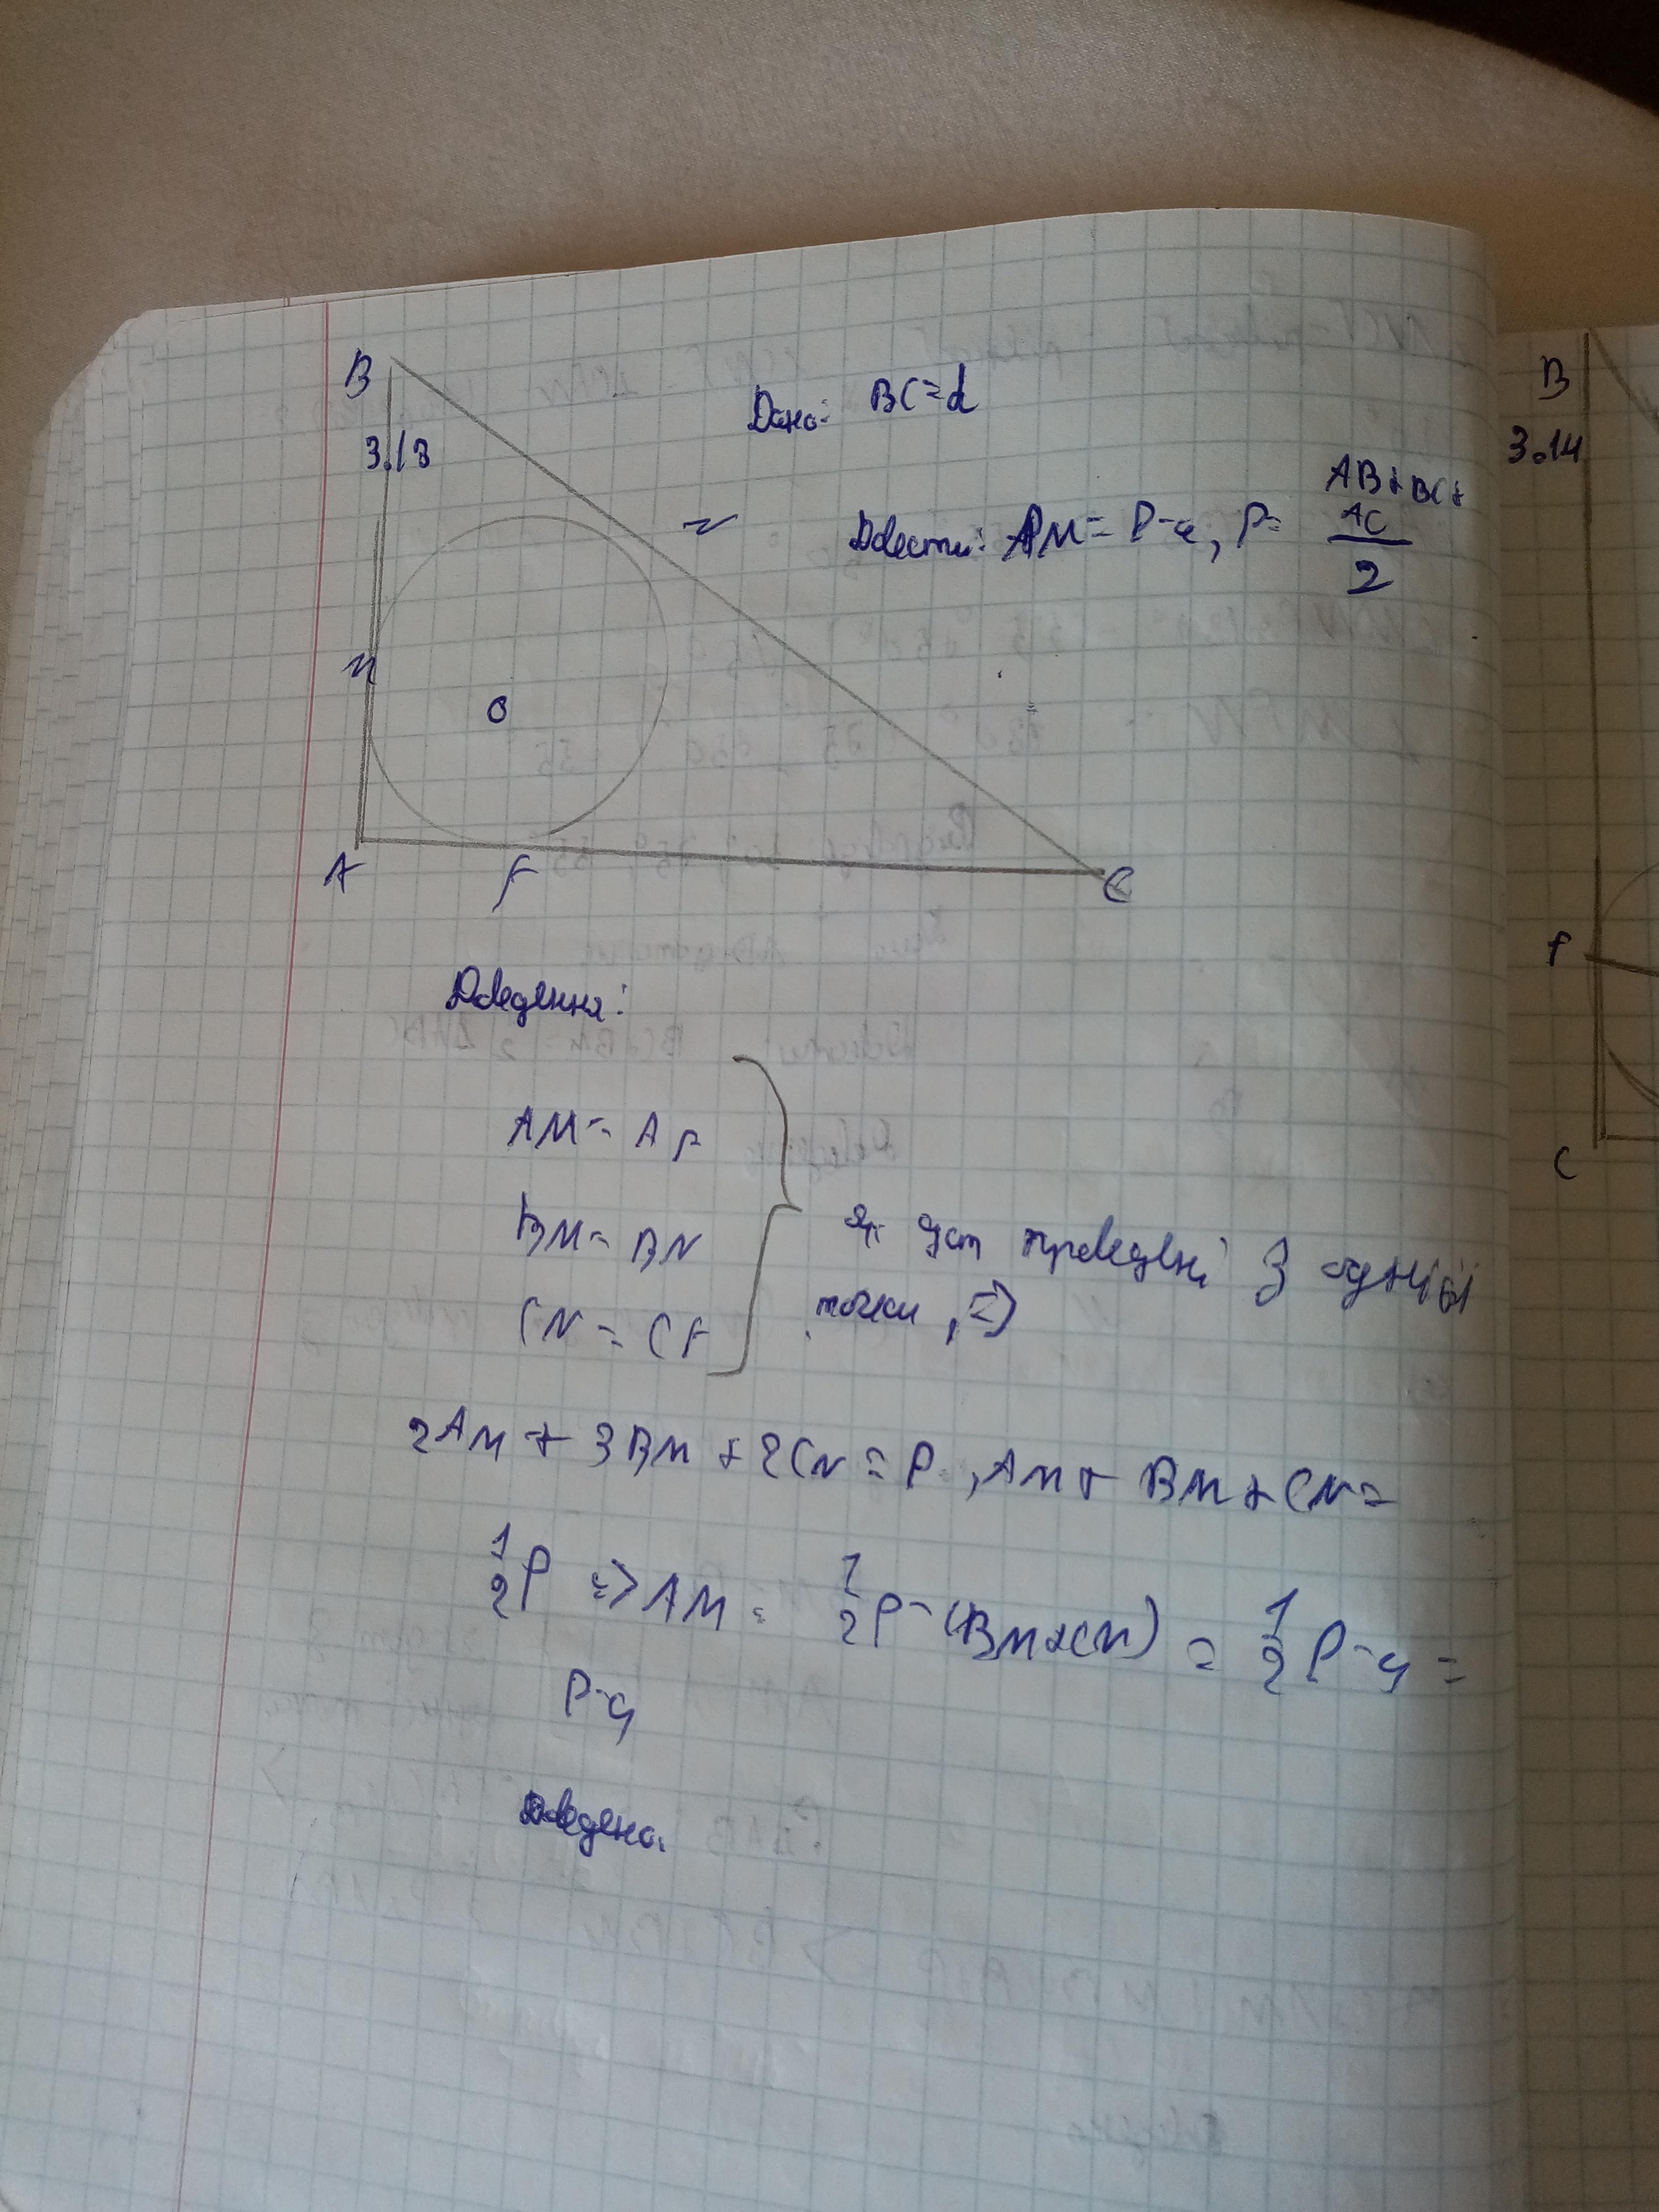 B
3.13
Дано: BC=d
N
Довести: AM= P-a, P= AB+BC+AC / 2
M
O
A F C
Доведення:
AM= AF
BM= BN
CN = CF
проведені з однієї
точки, =>
2AM + 3BM + 2CN = P, AM+ BM+CN=
1/2 P => AM = 1/2 P-(BM+CN) = 1/2 P-a =
P-a
Доведено.
B
3.14
P
C